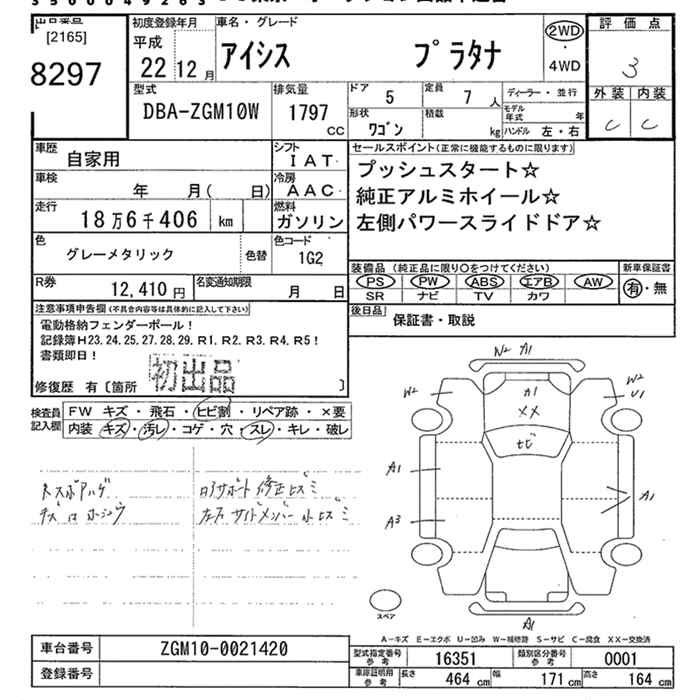 [2165]
8297
初度登録年月
平成
22 12月
車名・グレード
アイシス プラタナ
2WD
・
4WD
評価点
3
外装 内装
C C
型式
DBA-ZGM10W
排気量
1797
CC
ドア 5
定員 7 人
ディーラー・並行
形状 ワゴン
積載 kg
モデル年式 年
ハンドル 左・右
車歴 自家用
シフト IAT
車検 年 月( 日)
冷房 AAC
走行 18万6千406 km
燃料 ガソリン
色 グレーメタリック
色替
色コード 1G2
R券 12,410円
名変通知期限 月 日
セールスポイント(正常に機能するものに限ります)
プッシュスタート☆
純正アルミホイール☆
左側パワースライドドア☆
装備品(純正品に限り○をつけてください)
PS PW ABS エアB AW
SR ナビ TV カワ
新車保証書
有・無
後日品 保証書・取説
注意事項申告欄(不具合内容等は具体的に記入して下さい)
電動格納フェンダーポール!
記録簿H23.24.25.27.28.29.R1.R2.R3.R4.R5!
書類即日!
初出品
修復歴 有〔箇所 〕
検査員記入欄
FW キズ・飛石・ヒビ割・リペア跡・×要
内装 キズ・汚レ・コゲ・穴・スレ・キレ・破レ
N2 A1
W2
A1
XX
W2
U1
A1
A3
A1
A1
スペア
A-キズ E-エクボ U-凹み W-補修跡 S-サビ C-腐食 XX-交換済
車台番号 ZGM10-0021420
登録番号
型式指定番号参考 16351
類別区分番号参考 0001
車庫証明用参考 長さ 464 cm 幅 171 cm 高さ 164 cm